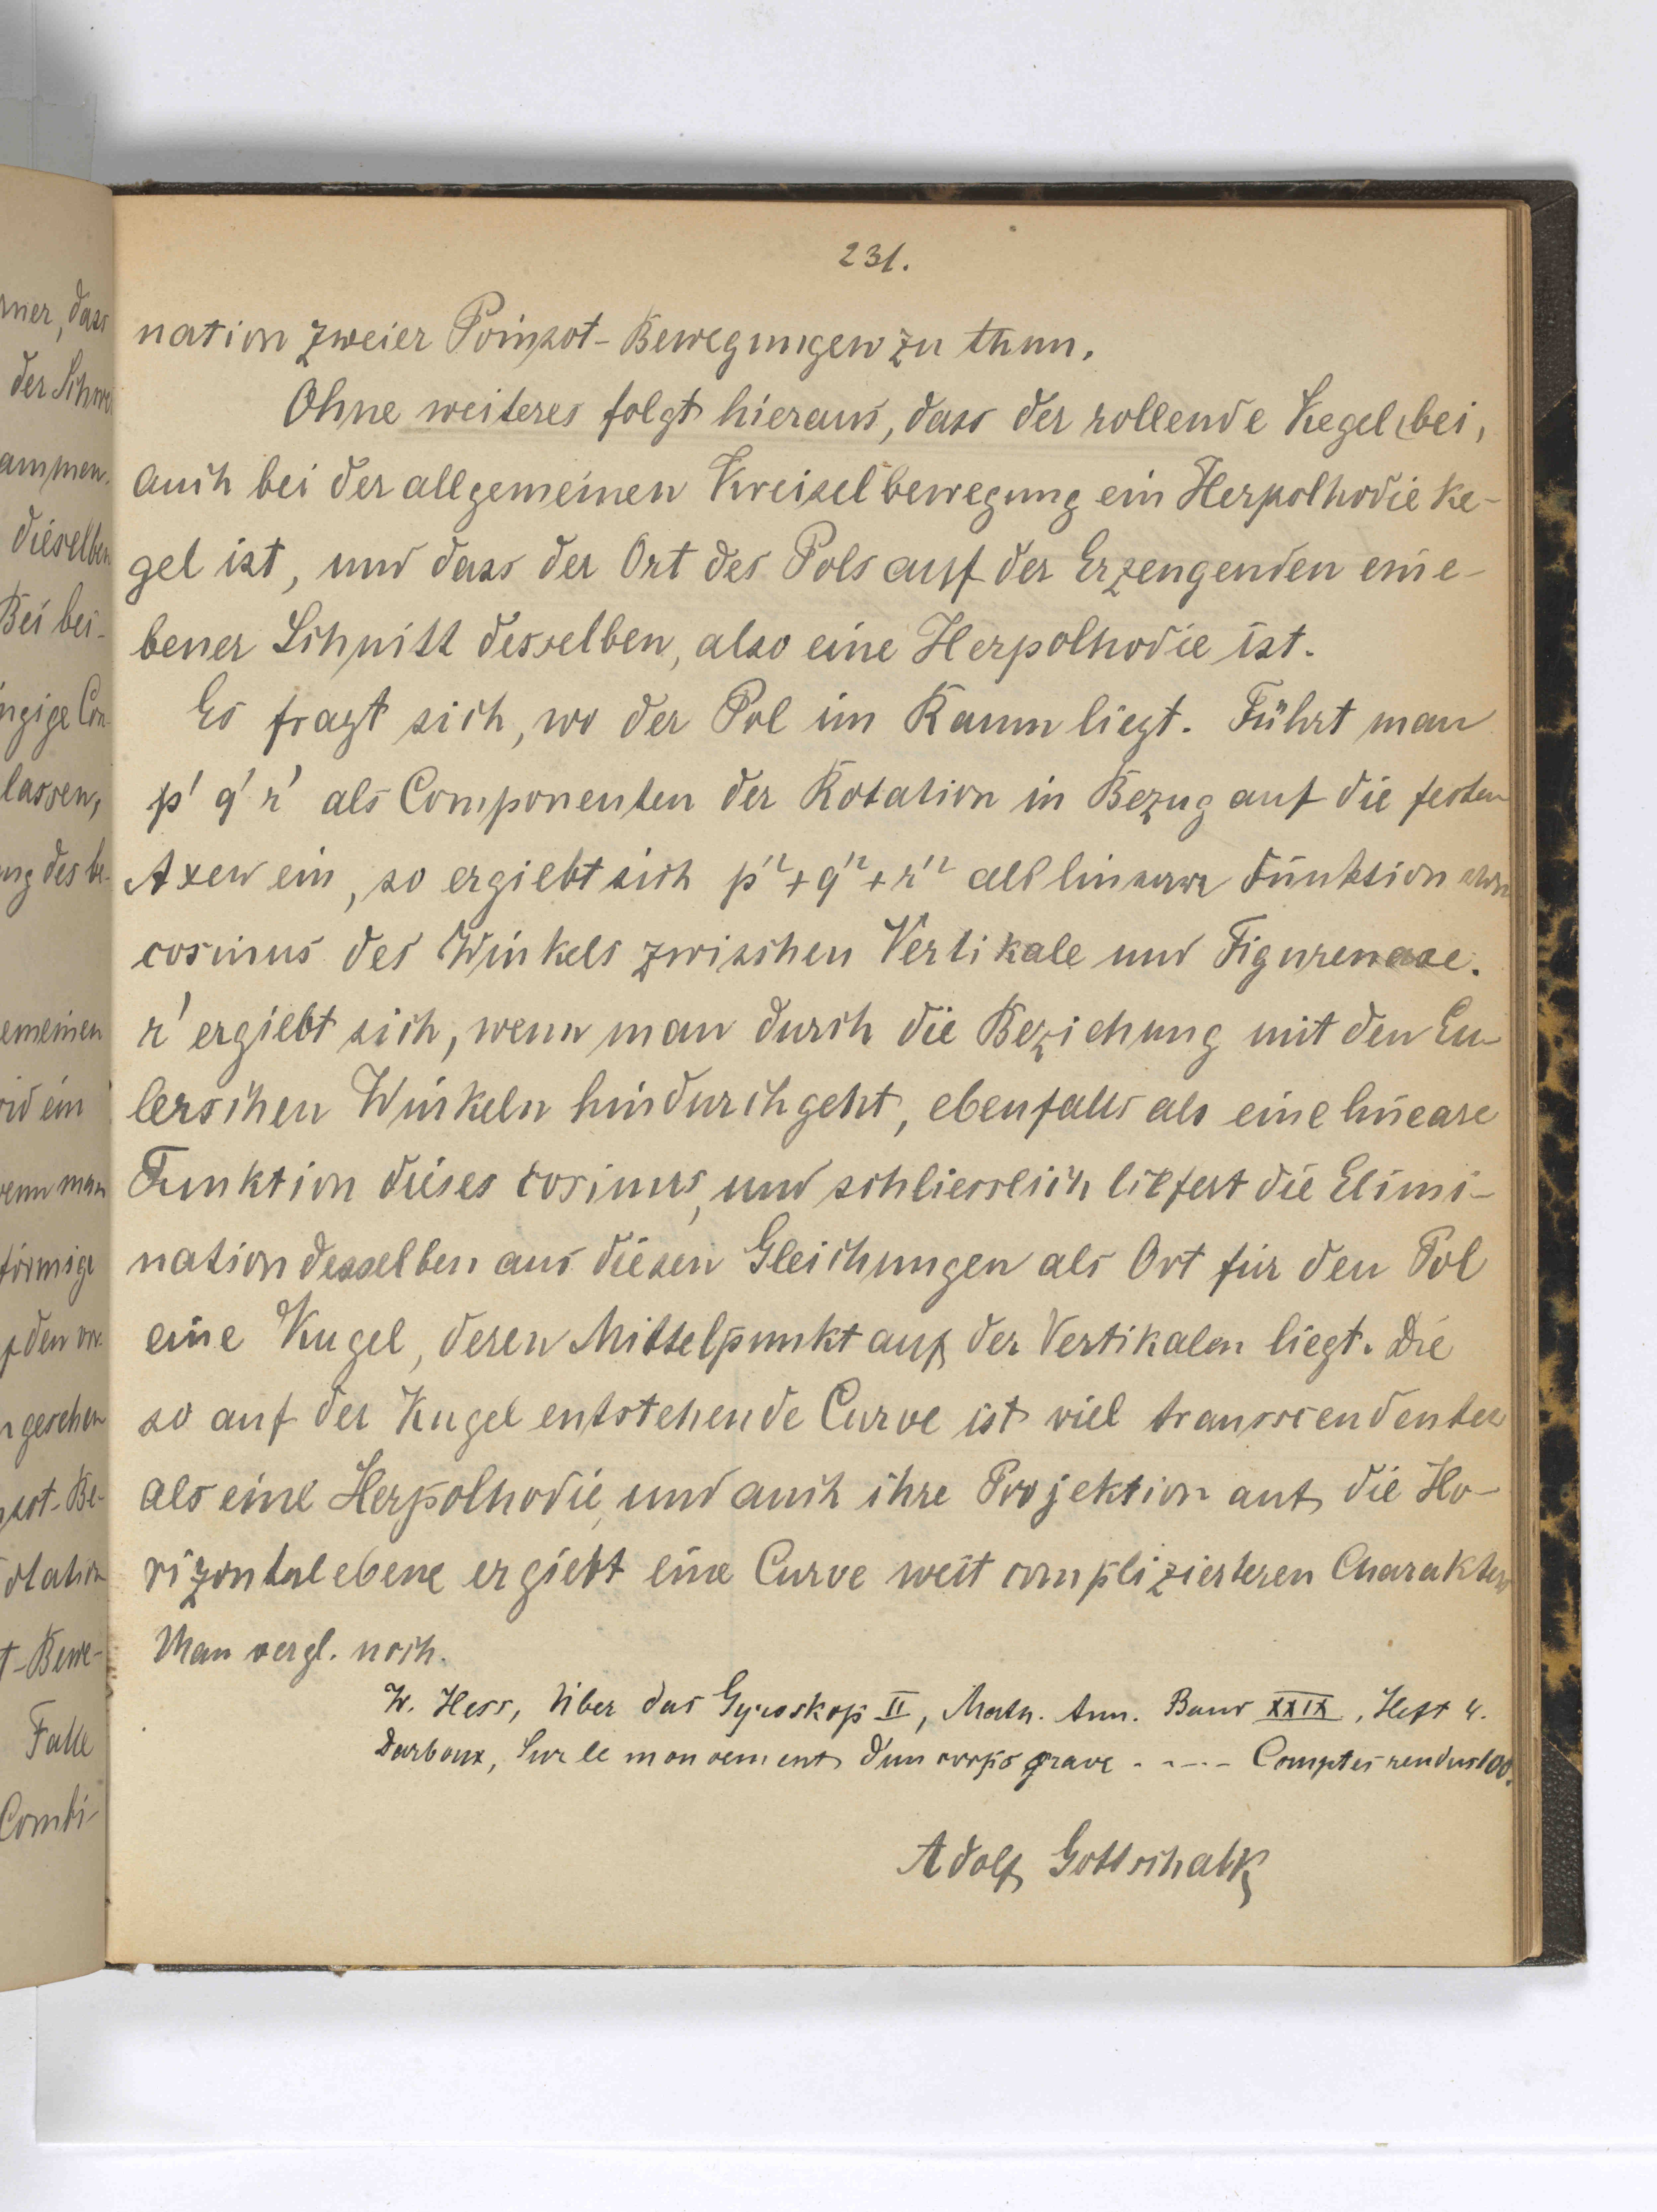 231.
nation zweier Poinsot-Bewegungen zu thun.
Ohne weiteres folgt hieraus, dass der rollende Kegel bei,
auch bei der allgemeinen Kreiselbewegung ein Herpolhodieke-
gel ist, und dass der Ort des Pols auf der Erzeugenden ein e-
bener Schnitt desselben, also eine Herpolhodie ist.
Es fragt sich, wo der Pol im Raum liegt. Führt man
p' q' r' als Componenten der Rotation in Bezug auf die festen
Axen ein, so ergiebt sich p'² + q'² + r'² als lineare Funktion vom
cosinus des Winkels zwischen Vertikale und Figurenaxe.
r' ergiebt sich, wenn man durch die Beziehung mit den Eu-
lerschen Winkeln hindurchgeht, ebenfalls als eine lineare
Funktion dieses cosinus, und schliesslich liefert die Elimi-
nation desselben aus diesen Gleichungen als Ort für den Pol
eine Kugel, deren Mittelpunkt auf der Vertikalen liegt. Die
so auf der Kugel entstehende Curve ist viel transscendenter
als eine Herpolhodie, und auch ihre Projektion auf die Ho-
rizontalebene ergiebt eine Curve weit complizierteren Charakters
Man vergl. noch.
W. Hess, Über das Gyroskop II, Math. Ann. Band XXIX, Heft 4.
Darboux, Sur le mouvement d'un corps grave . - - - - Comptes rendus 100.
Adolf Gottschalk
mner, dass
der Schwe
ammen.
dieselben
Bei bei-
ngige Con-
lassen,
ung des be-
emeinen
oid ein
wenn man
förmige
f den vor-
n gesehen
nsot-Be-
otation
t-Bewe-
Falle
Combi-